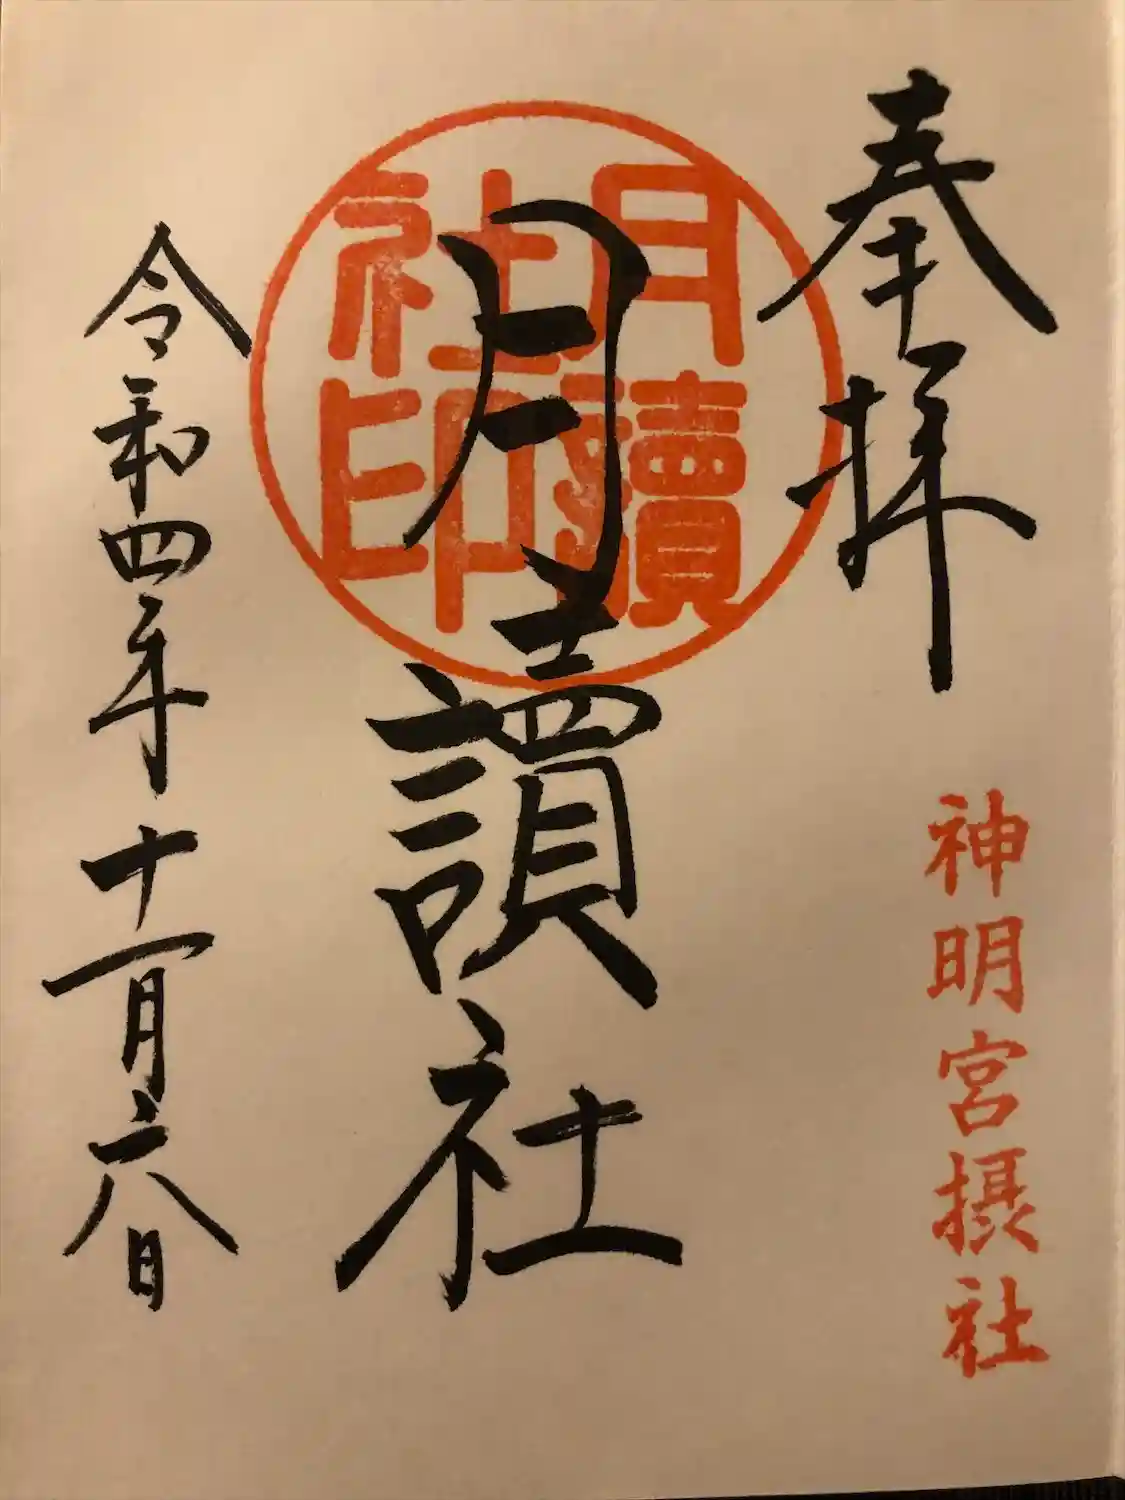 奉拝
神明宮摂社
月讀社印
月讀社
令和四年十一月六日